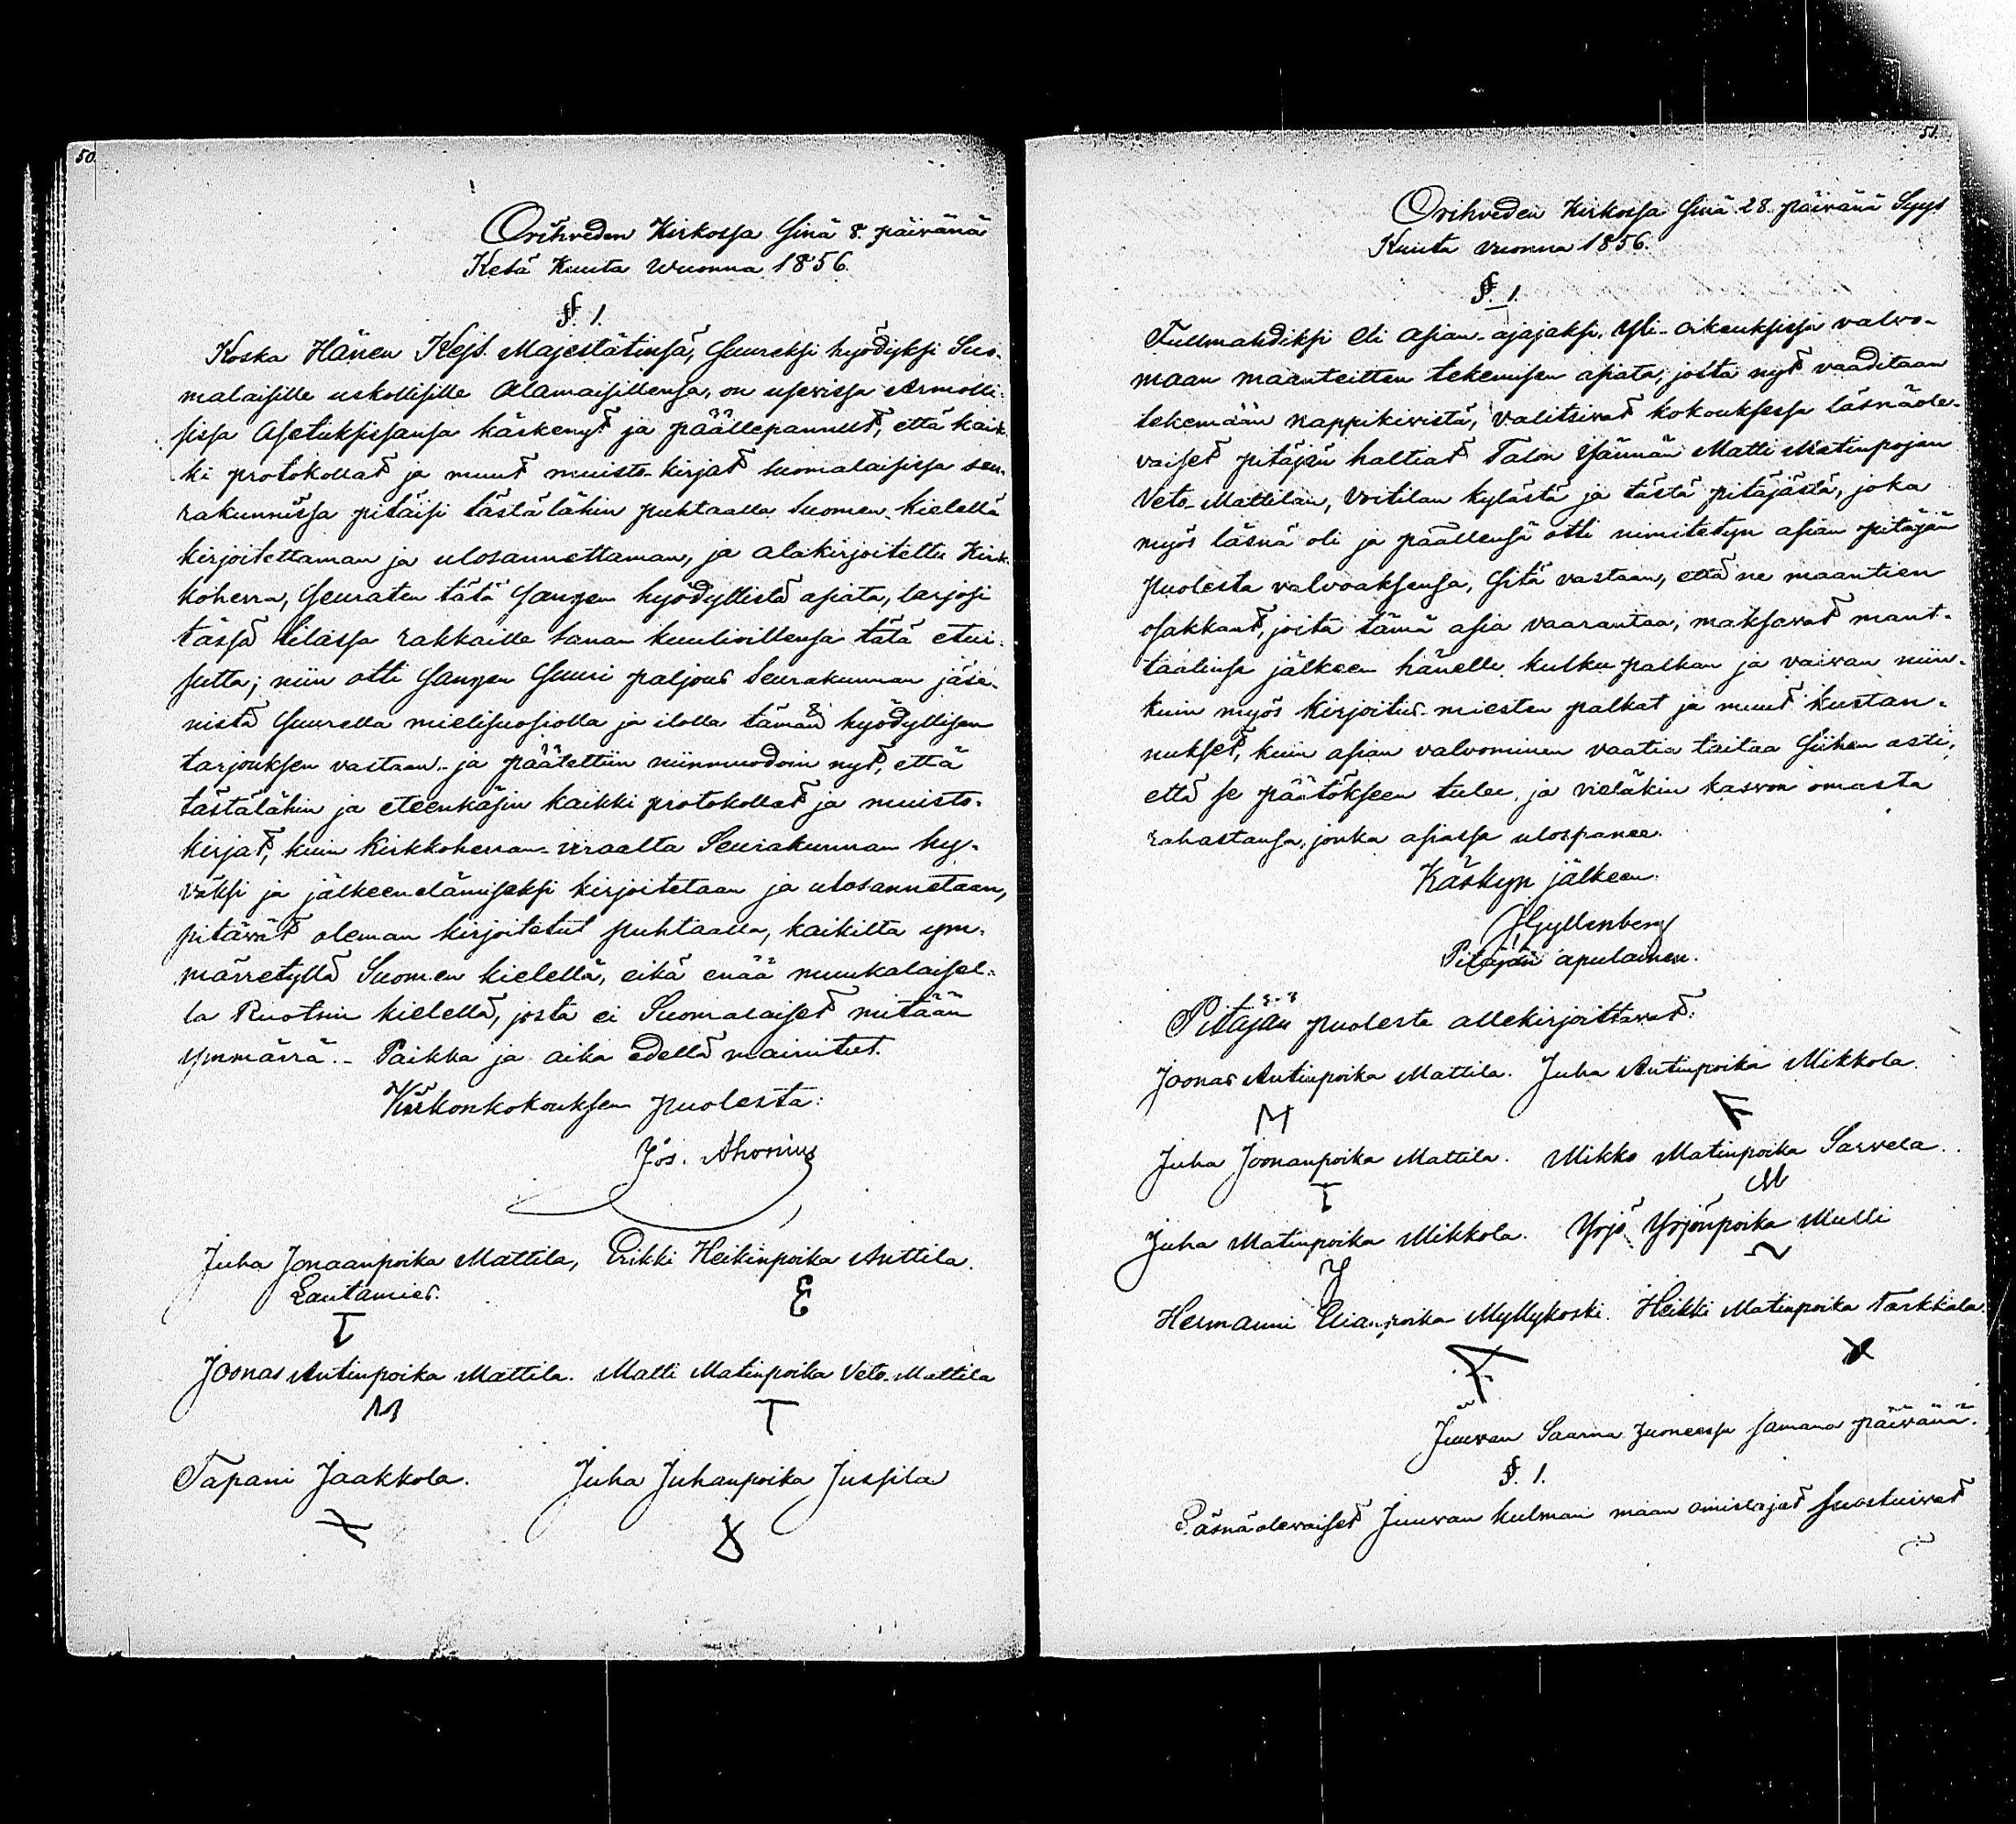 50.
Orihveden Kirkossa Sinä 8. päivänä
Kesä Kuuta Wuonna 1856.
§. 1.
Koska Hänen Kejs. Majestätinsä, Suureksi hyödyksi Suo-
malaisille uskollisille Alamaisillensa, on useissa Armolli-
sissa Asetuksissansa käskenyt ja päällepannut, että kaik-
ki protokollat ja muut muisto-kirjat suomalaisissa seu-
rakunnissa pitäisi tästälähin puhtaalla Suomen-kielellä
kirjoitettaman ja ulosannettaman, ja alakirjoitettu Kirk-
koherra, Seuraten tätä Sangen hyödyllistä asiata, tarjosi
tässä tilassa rakkaille Sanan kuulioillensa tätä etui-
sutta; niin otti Sangen Suuri paljous Seurakunnan jäse-
nistä Suurella mielisuosiolla ja ilolla tämän hyödyllisen
tarjouksen vastaan, ja päätettiin niinmuodoin nyt, että
tästälähin ja eteenkäsin kaikki protokollat ja muisto-
kirjat, kuin Kirkkoherran-viraalta Seurakunnan hy-
väksi ja jälkeenelämiseksi kirjoitetaan ja ulosannetaan,
pitävät oleman kirjoitetut puhtaalla, kaikilta ym-
märretyllä Suomen kielellä, eikä enää muukalaisel-
la Ruotsin kielellä, josta ei Suomalaiset mitään
ymmärrä. - Paikka ja aika edellä mainitut.
Kirkonkokouksen puolesta:
Jos. Ahonius
Juha Jonaanpoika Mattila, Erikki Heikinpoika Anttila.
Lautamies.
T E
Joonas Antinpoika Mattila. Matti Matinpoika Veto-Mattila
M T
Tapani Jaakkola. Juha Juhanpoika Jussila
51.
Orihveden Kirkossa Sinä 28. päivänä Syys
Kuuta vuonna 1856.
§. 1.
Fullmahdiksi eli asian-ajajaksi, Yli-oikeuksissa valvo-
maan maanteitten tekemisen asiata, joita nyt vaaditaan
tekemään nappikivistä, valitsivat kokouksessa läsnäole-
vaiset pitäjän haltiat Talon Isännän Matti Matinpojan
Veto-Mattilan, Voitilan kylästä ja tästä pitäjästä, joka
myös läsnä oli ja päällensä otti nimitetyn asian pitäjän
puolesta valvoaksensa, Sitä vastaan, että ne maantien
osakkaat, joita tämä asia vaarantaa, maksavat mant-
taalinsa jälkeen hänelle kulku palkan ja vaivan niin-
kuin myös kirjoitus-miesten palkat ja muut kustan-
nukset, kuin asian valvominen vaatia taitaa Siihen asti,
että se päätökseen tulee, ja vieläkin kasvon omasta
rahastansa, jonka asiassa ulospanee.
Käskyn jälkeen.
Gyllenberg
Pitäjän apulainen.
Pitäjän puolesta allekirjoittavat:
Joonas Antinpoika Mattila. Juha Antinpoika Mikkola.
M
Juha Joonanpoika Mattila. Mikko Matinpoika Sarvela.
T M
Juha Matinpoika Mikkola. Yrjö Yrjönpoika Mulli
Hermanni Elianpoika Myllykoski. Heikki Matinpoika Tarkkala.
Juuvan Saarna huoneessa samana päivänä.
§. 1.
Läsnäolevaiset Juuvan kulman maan omistajat suostuivat